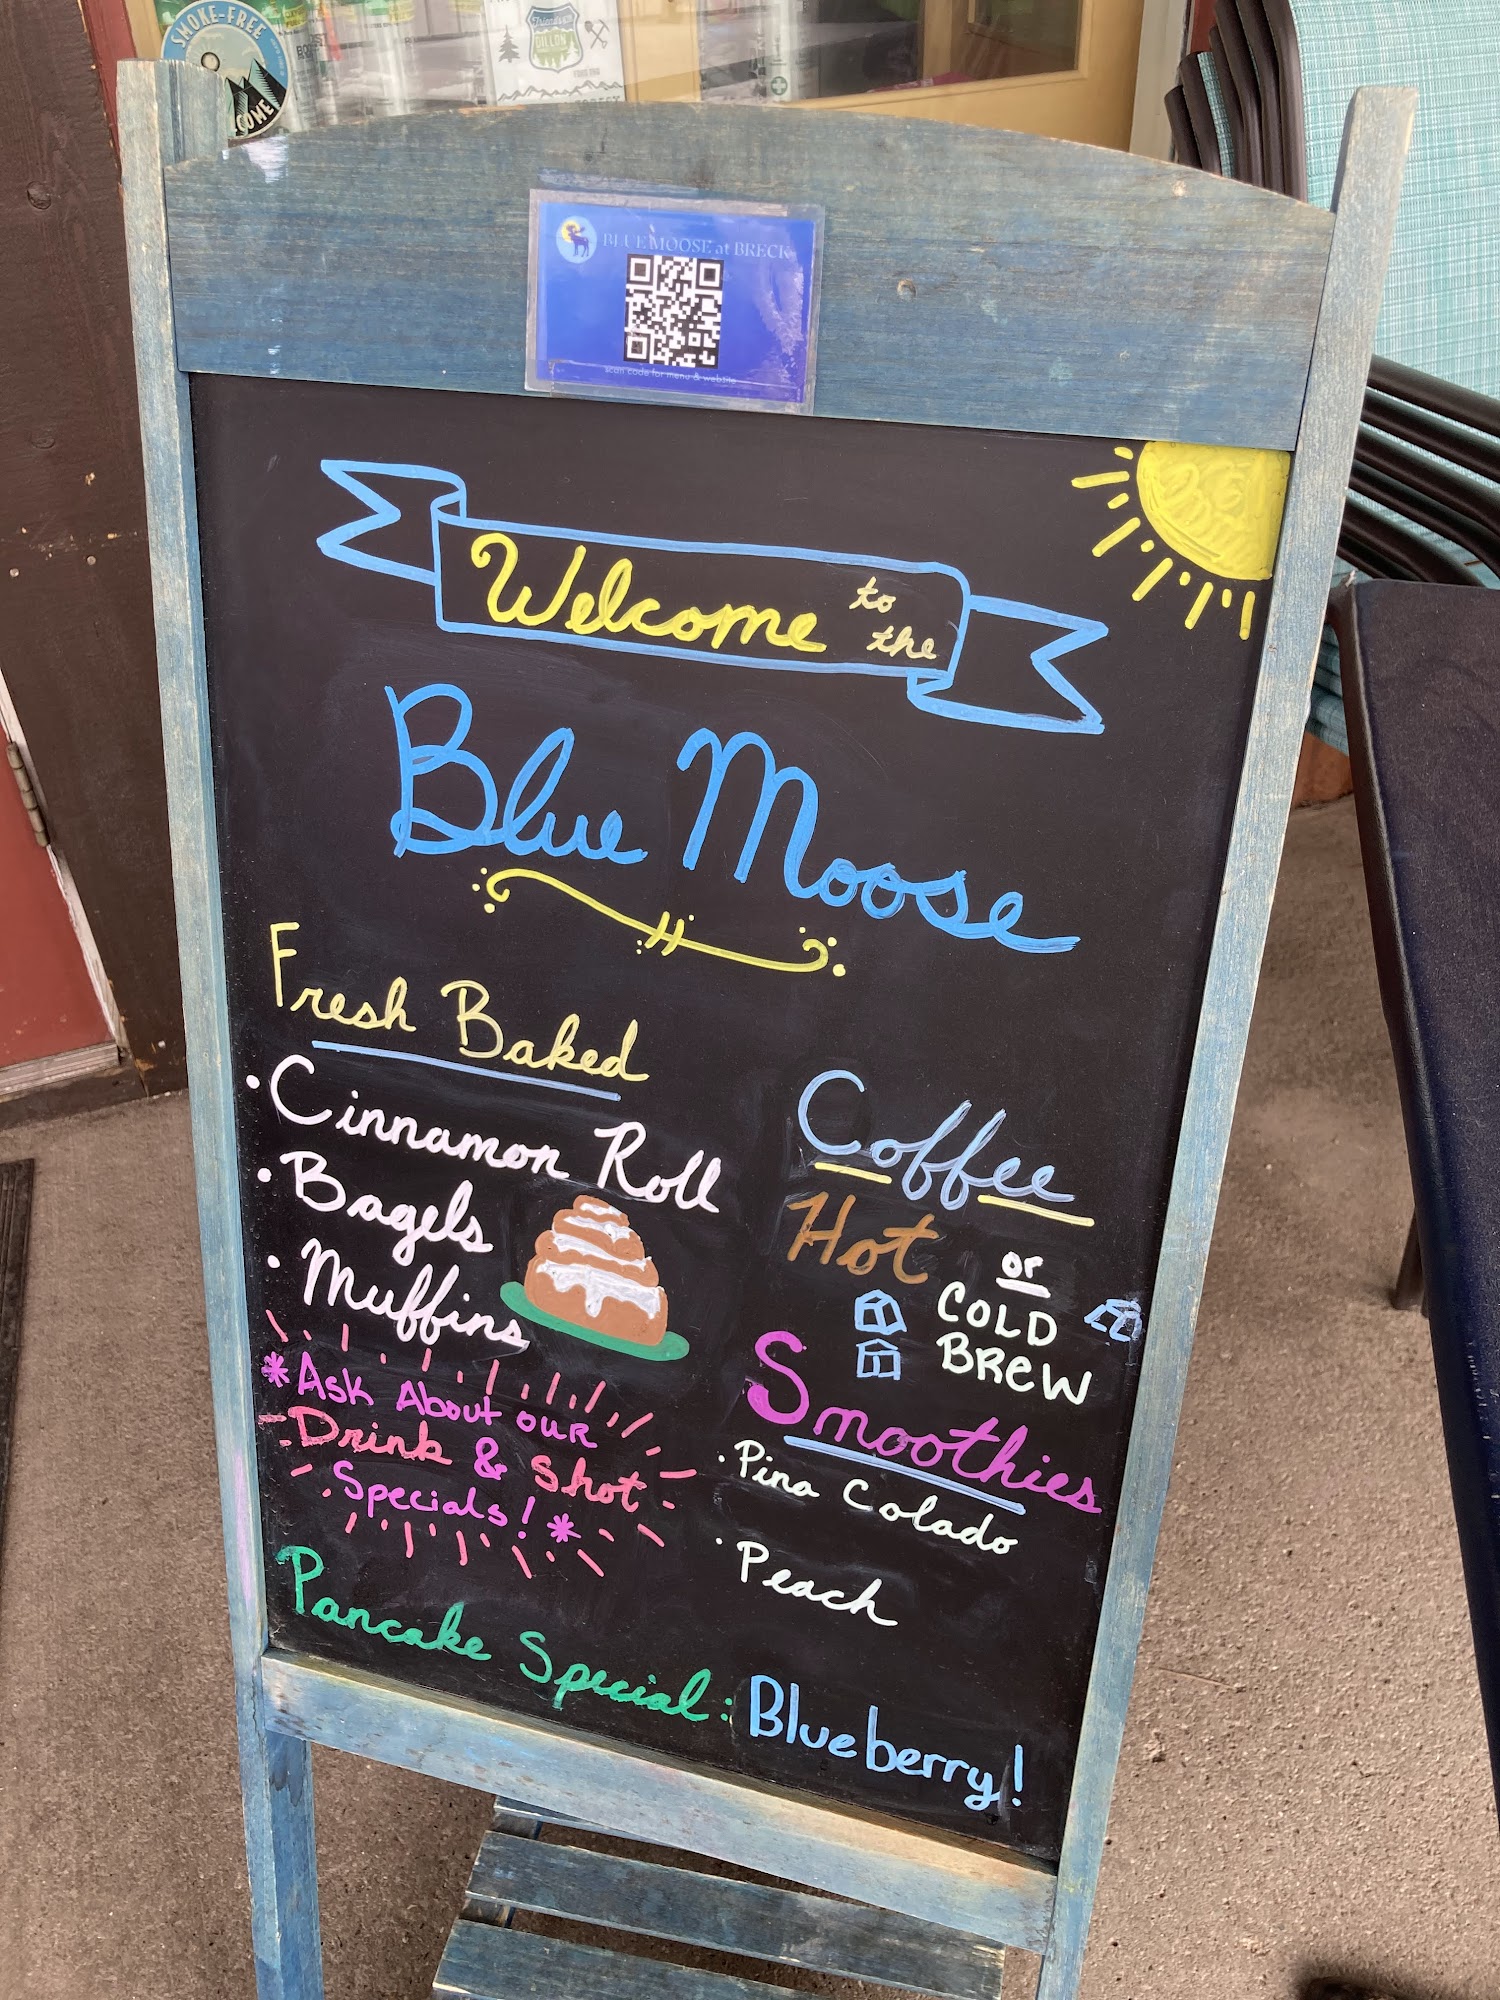 SMOKE-FREE
Friends of
DILLON
BLUE MOOSE at BRECK
scan code for menu & website
Welcome to the
Blue Moose
Fresh Baked
· Cinnamon Roll
· Bagels
· Muffins
*Ask About our
Drink & Shot
Specials! *
Coffee
Hot or
COLD
BREW
Smoothies
· Pina Colado
· Peach
Pancake Special: Blueberry!